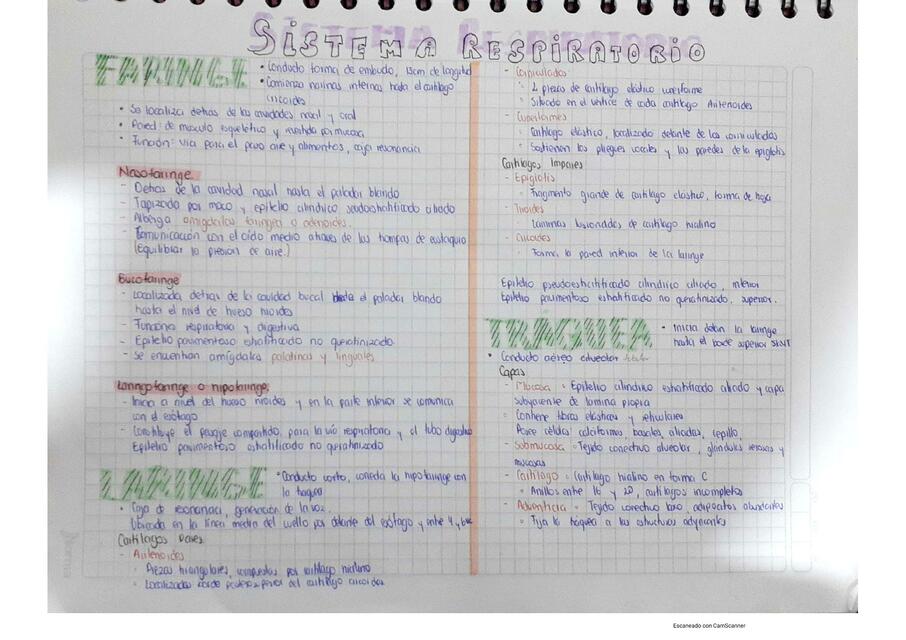 SISTEMA RESPIRATORIO
FARINGE
• Conducto forma de embudo, 13cm de longitud
• Comienza narinas internas hasta el cartilago
cricoides
• Se localiza detras de las cavidades nasal y oral
• Pared: de musculo esqueletico y revestida por mucosa
• Función: via para el paso aire y alimentos, caja resonancia
Nasofaringe
- Detras de la cavidad nasal hasta el paladar blando
- Tapizada por moco y epitelio cilindrico seudoestratificado ciliado
- Alberga amigdalas faringea o adenoides.
- Comunicación con el oído medio atraves de las trompas de eustaquio
(Equilibrar la presion de aire.)
Bucofaringe
- Localizada detras de la cavidad bucal desde el paladar blando
hasta el nivel de hueso hioides
- Funciona respiratoria y digestiva
- Epitelio pavimentoso estratificado no queratinizado
- Se encuentran amígdalas palatina y linguales
Laringofaringe o hipofaringe,
- Inicia a nivel del hueso hioides y en la parte inferior se comunica
con el esófago
- Constituye el pasaje compartido, para la vía respiratoria y el tubo digestivo
Epitelio pavimentoso estratificado no queratinizado
LARINGE
• Conducto corto, conecta la hipofaringe con
la traquea
• Caja de resonancia, generación de la voz.
Ubicada en la línea media del cuello por delante del esófago y entre 4 y
Cartílagos Pares
- Aritenoides
◦ Piezas triangulares, compuestas por cartílago hialino
◦ Localizadas borde del cartílago cricoides
- Corniculados
◦ 2 piezas de cartílago elástico cuneiforme
◦ Situado en el vértice de cada cartílago Aritenoides
- Cuneiformes
◦ Cartilago elástico, localizado delante de los corniculados
◦ Sostienen los pliegues vocales y las paredes de la epiglotis
Cartílagos Impares
- Epiglotis
◦ Fragmento grande de cartílago elastico, forma de hoja
- Tiroides
Laminas fusionadas de cartílago hialino
- Cricoides
◦ Forma la pared inferior de la laringe
Epitelio pseudoestratificado cilindrico ciliado, inferior
Epitelio pavimentoso estratificado no queratinizado, superior.
TRAQUEA
• Inicia detras la laringe
hasta el borde superior
• Conducto aéreo alveolar
Capas
- Mucosa = Epitelio cilindrico estratificado ciliado y capa
subyacente de lamina propia
◦ Contiene fibras elásticas y reticulares
Posee células caliciformes, basales, ciliadas, cepillo,
- Submucosa = Tejido conectivo alveolar, glandulas serosas y
mucosas
- Cartílago = Cartílago hialino en forma C
◦ Anillos entre 16 y 20, cartílagos incompletos
- Adventicia = Tejido conectivo laxo, adipocitos abundantes
◦ Fija la tráquea a las estructuras adyacentes
Escaneado con CamScanner